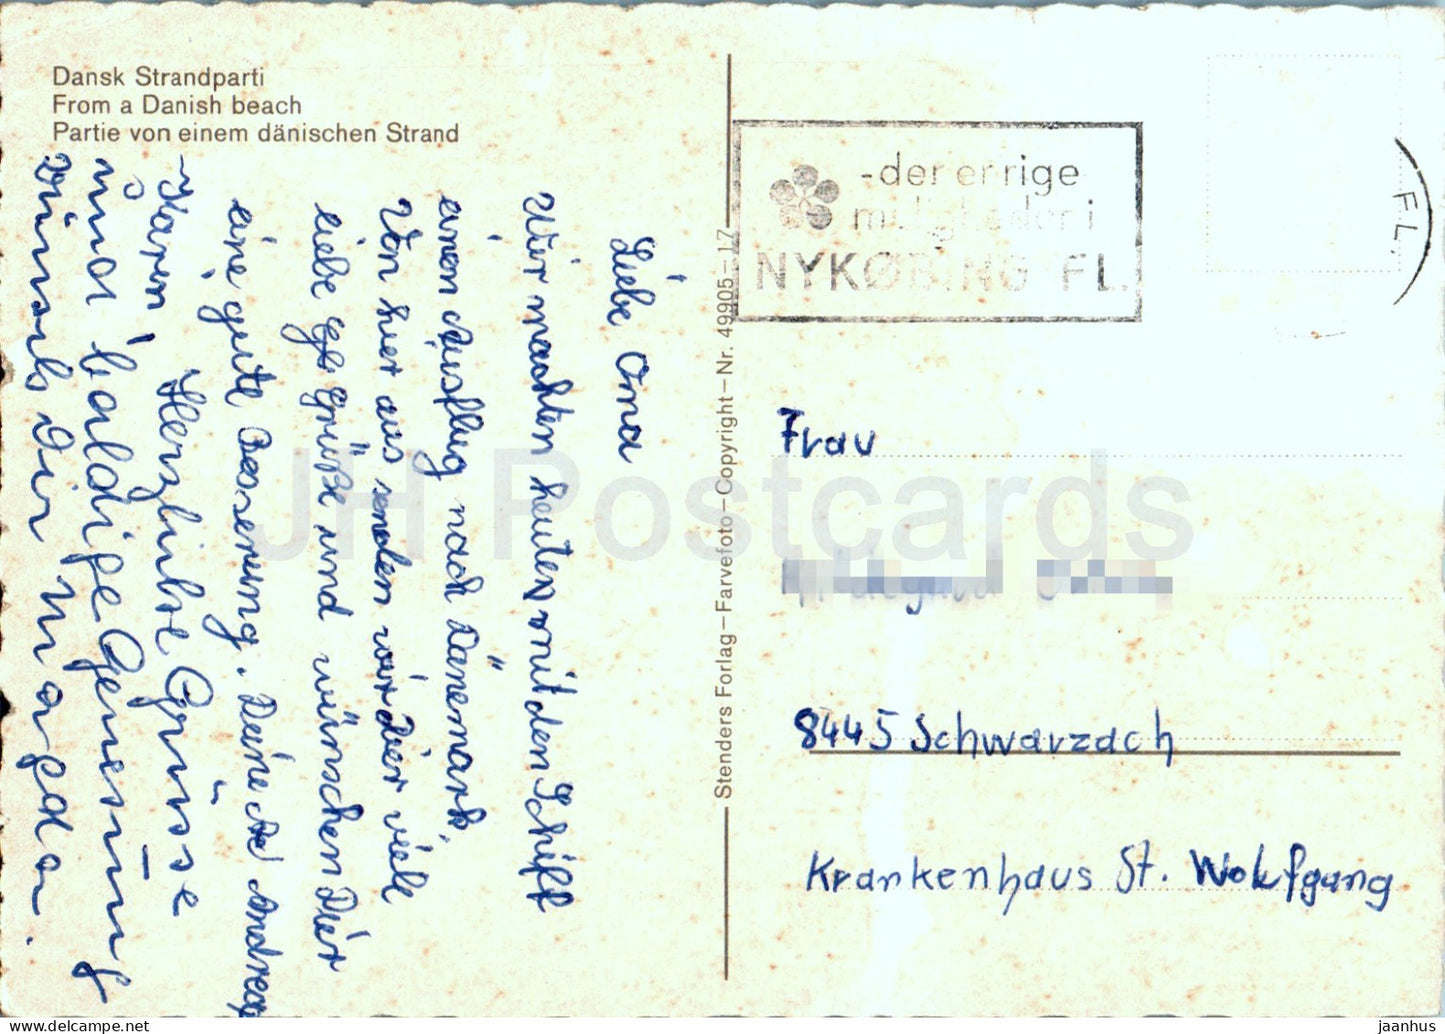 Dansk Strandparti
From a Danish beach
Partie von einem dänischen Strand
Liebe Oma
Wir machten heute mit dem Schiff
einen Ausflug nach Dänemark,
Von hier aus senden wir Dier viele
liebe Grüße und wünschen Dier
eine gute Besserung. Deine Andrea
Karen, Herzliche Grüsse
und baldige Genesung
wünscht Dir Magda.
Stenders Forlag – Farvefoto – Copyright – Nr. 49905 – 17
-der er rige
muligheder i
NYKØBING FL.
FL.
Frau
8445 Schwarzach
Krankenhaus St. Wolfgang
JH Postcards
https://www.delcampe.net
jaanhus